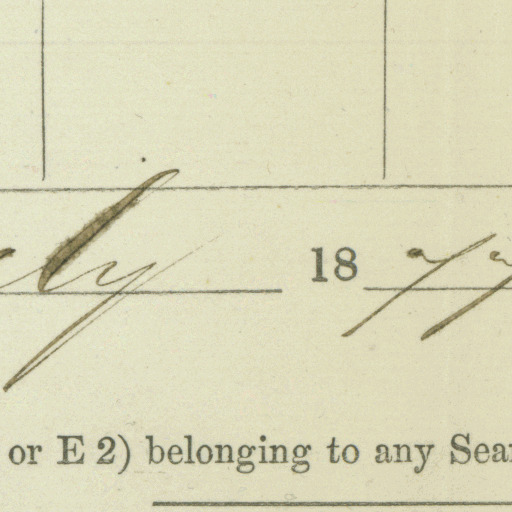 ly 1877
or E 2) belonging to any Sea